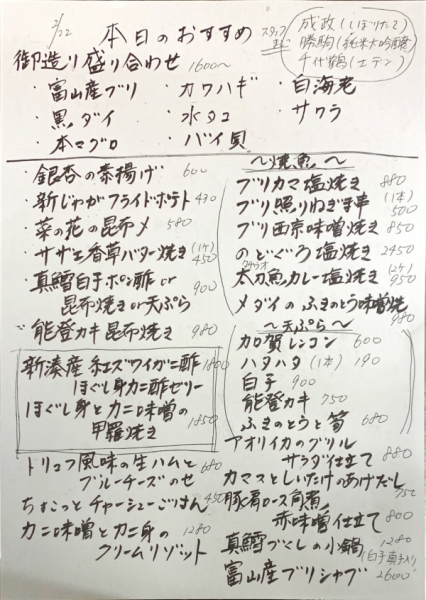 2/22
本日のおすすめ
スタッフ
成政(しぼりたて)
勝駒(純米大吟醸)
千代鶴(エテン)
御造り盛り合わせ 1600〜
・富山産ブリ ・カワハギ ・白海老
・黒ダイ ・水タコ ・サワラ
・本マグロ ・バイ貝
・銀杏の素揚げ 600
・新じゃがフライドポテト 430
・菜の花の昆布〆 580
・サザエ香草バター焼き (1ケ) 450
・真鱈白子ポン酢or
昆布焼きor天ぷら 900
・能登カキ昆布焼き 980
新湊産 紅ズワイガニ酢 1800
ほぐし身カニ酢ゼリー
ほぐし身とカニ味噌の
甲羅焼き 1850
トリュフ風味の生ハムと
ブルーチーズのせ 680
ちょこっとチャーシューごはん 450
カニ味噌とカニ身の
クリームリゾット 1280
〜焼魚〜
ブリカマ塩焼き 880
ブリ照りねぎま串 (1本) 500
ブリ西京味噌焼き 850
のどぐろ塩焼き 2450
太刀魚カレー塩焼き (2ケ) 950
メダイのふきのとう味噌焼 980
〜天ぷら〜
加賀レンコン 600
ハタハタ (1本) 190
白子 900
能登カキ 750
ふきのとうと筍 680
アオリイカのグリル
サラダ仕立て 880
カマスとしいたけのあげだし 750
豚肩ロース角煮
赤味噌仕立て 800
真鱈づくしの小鍋 1280
(白子真子入り)
富山産ブリシャブ 2600